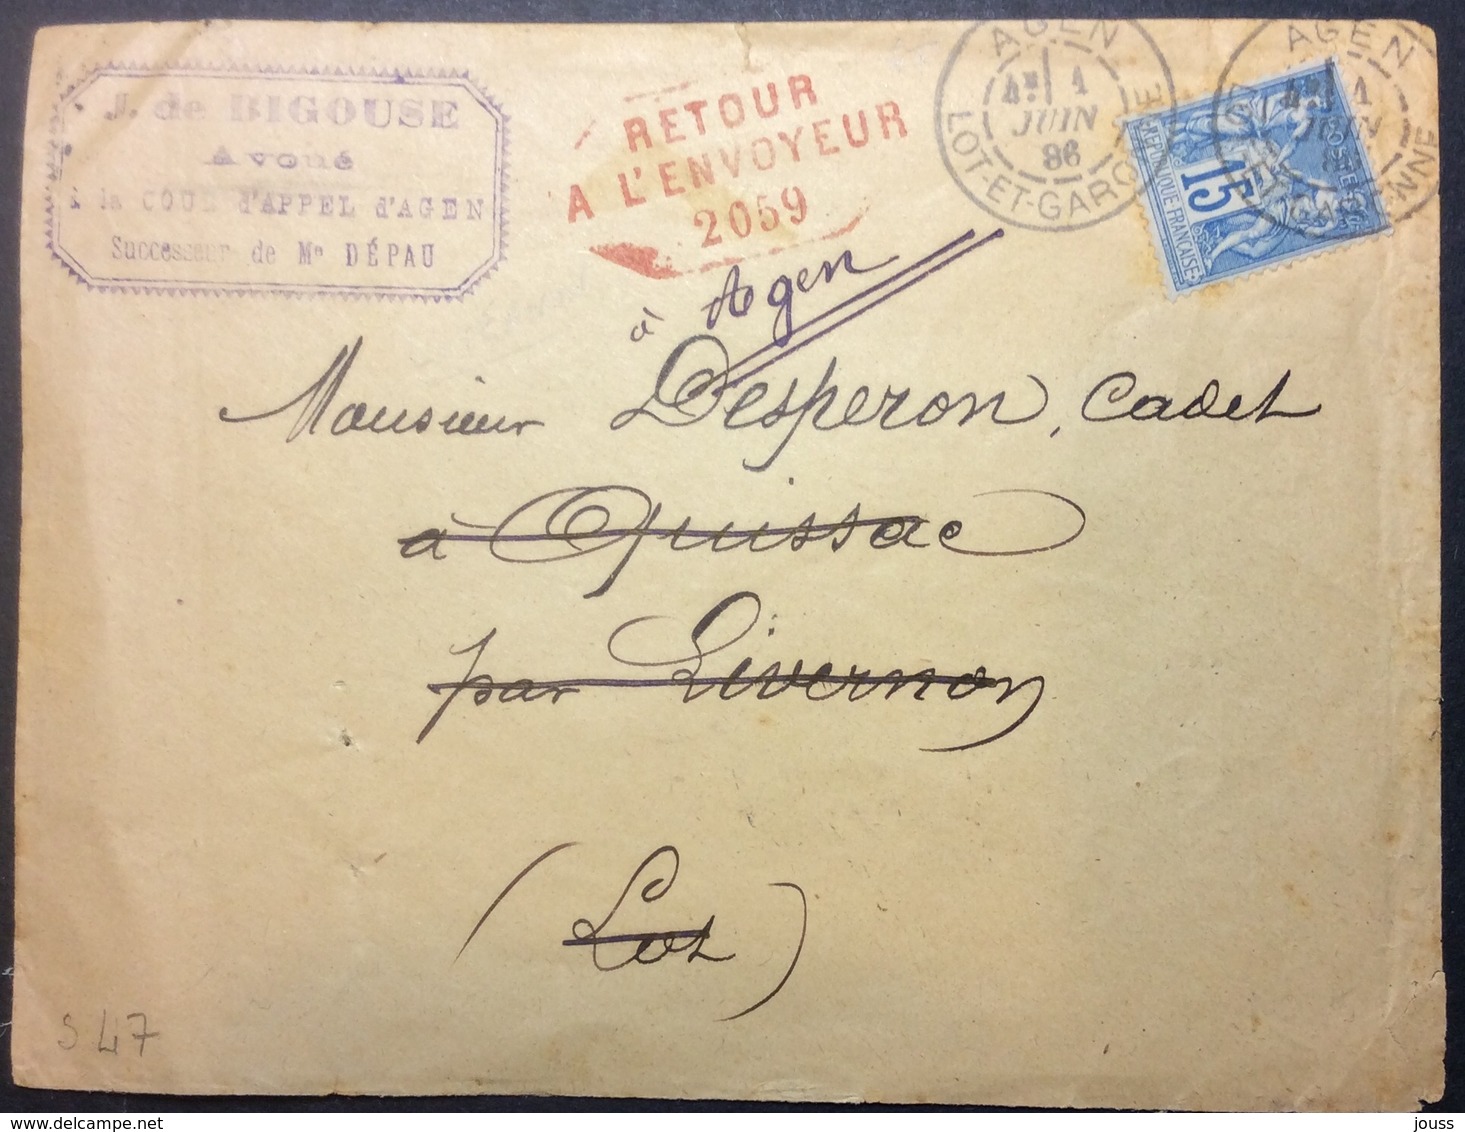 J. de BIGOUSE
Avoué
à la COUR D'APPEL d'AGEN
Successeur de Me DÉPAU
RETOUR
A L'ENVOYEUR
2059
AGEN
4E 1
JUIN
86
LOT-ET-GARONNE
AGEN
JUIN
GARONNE
POSTE
15
REPUBLIQUE FRANÇAISE
à Agen
Monsieur Desperon, Cadet
à Quissac
par Livernon
(Lot)
S 47
delcampe.net
jouss